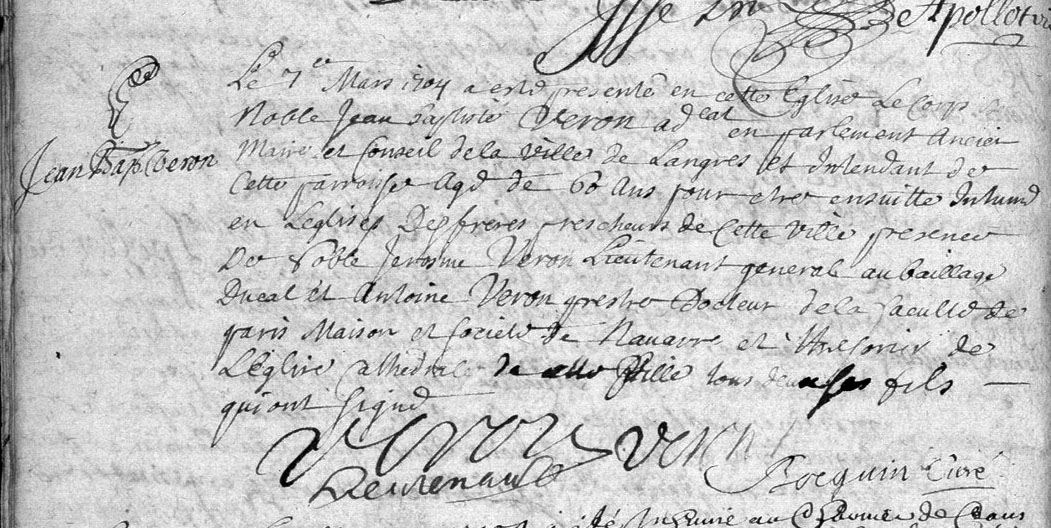 Jean Bap. Veron
Le 7e Mars 1704 a esté presenté en cette Eglise Le Corps
Noble Jean baptiste Veron adcat en parlement Ancien
Maire et Conseil de la Ville de Langres et Intendant de
Cette parroisse Agé de 60 Ans pour etre ensuitte Inhumé
en Leglises Des freres prescheurs de Cette Ville presence
De Noble Jerosme Veron Lieutenant general au bailliage
Ducal et Antoine Veron prestre Docteur de la faculté de
paris Maison et societé de Navarre et thresorier de
L'église Cathedrale de cette Ville tous deux ses fils
qui ont signé
Veron Veron
Lieutenant
Bocquin Curé